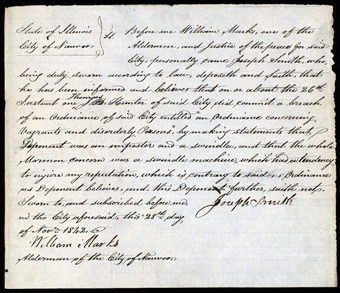 State of Illinois } ss. Before me William Marks, one of the
City of Nauvoo Aldermen, and Justice of the peace for said
City, personally came Joseph Smith, who,
being duly sworn according to law, deposeth and saith, that
he has been informed and believes that on or about the 26th
Instant one Thomas J. Hunter of said City did commit a breach
of an Ordinance of said City entitled an Ordinance concerning
Vagrants and disorderly Persons, by making statements that
Deponent was an impostor and a swindler, and that the whole
Mormon concern was a swindle machine, which has a tendency
to injure my reputation, which is contrary to said Ordinance
as Deponent believes, and this Deponent further, saith not.
Sworn to, and subscribed before me,
in the City aforesaid, this 28th day Joseph Smith
of Novr. 1842.
William Marks
Alderman of the City of Nauvoo.